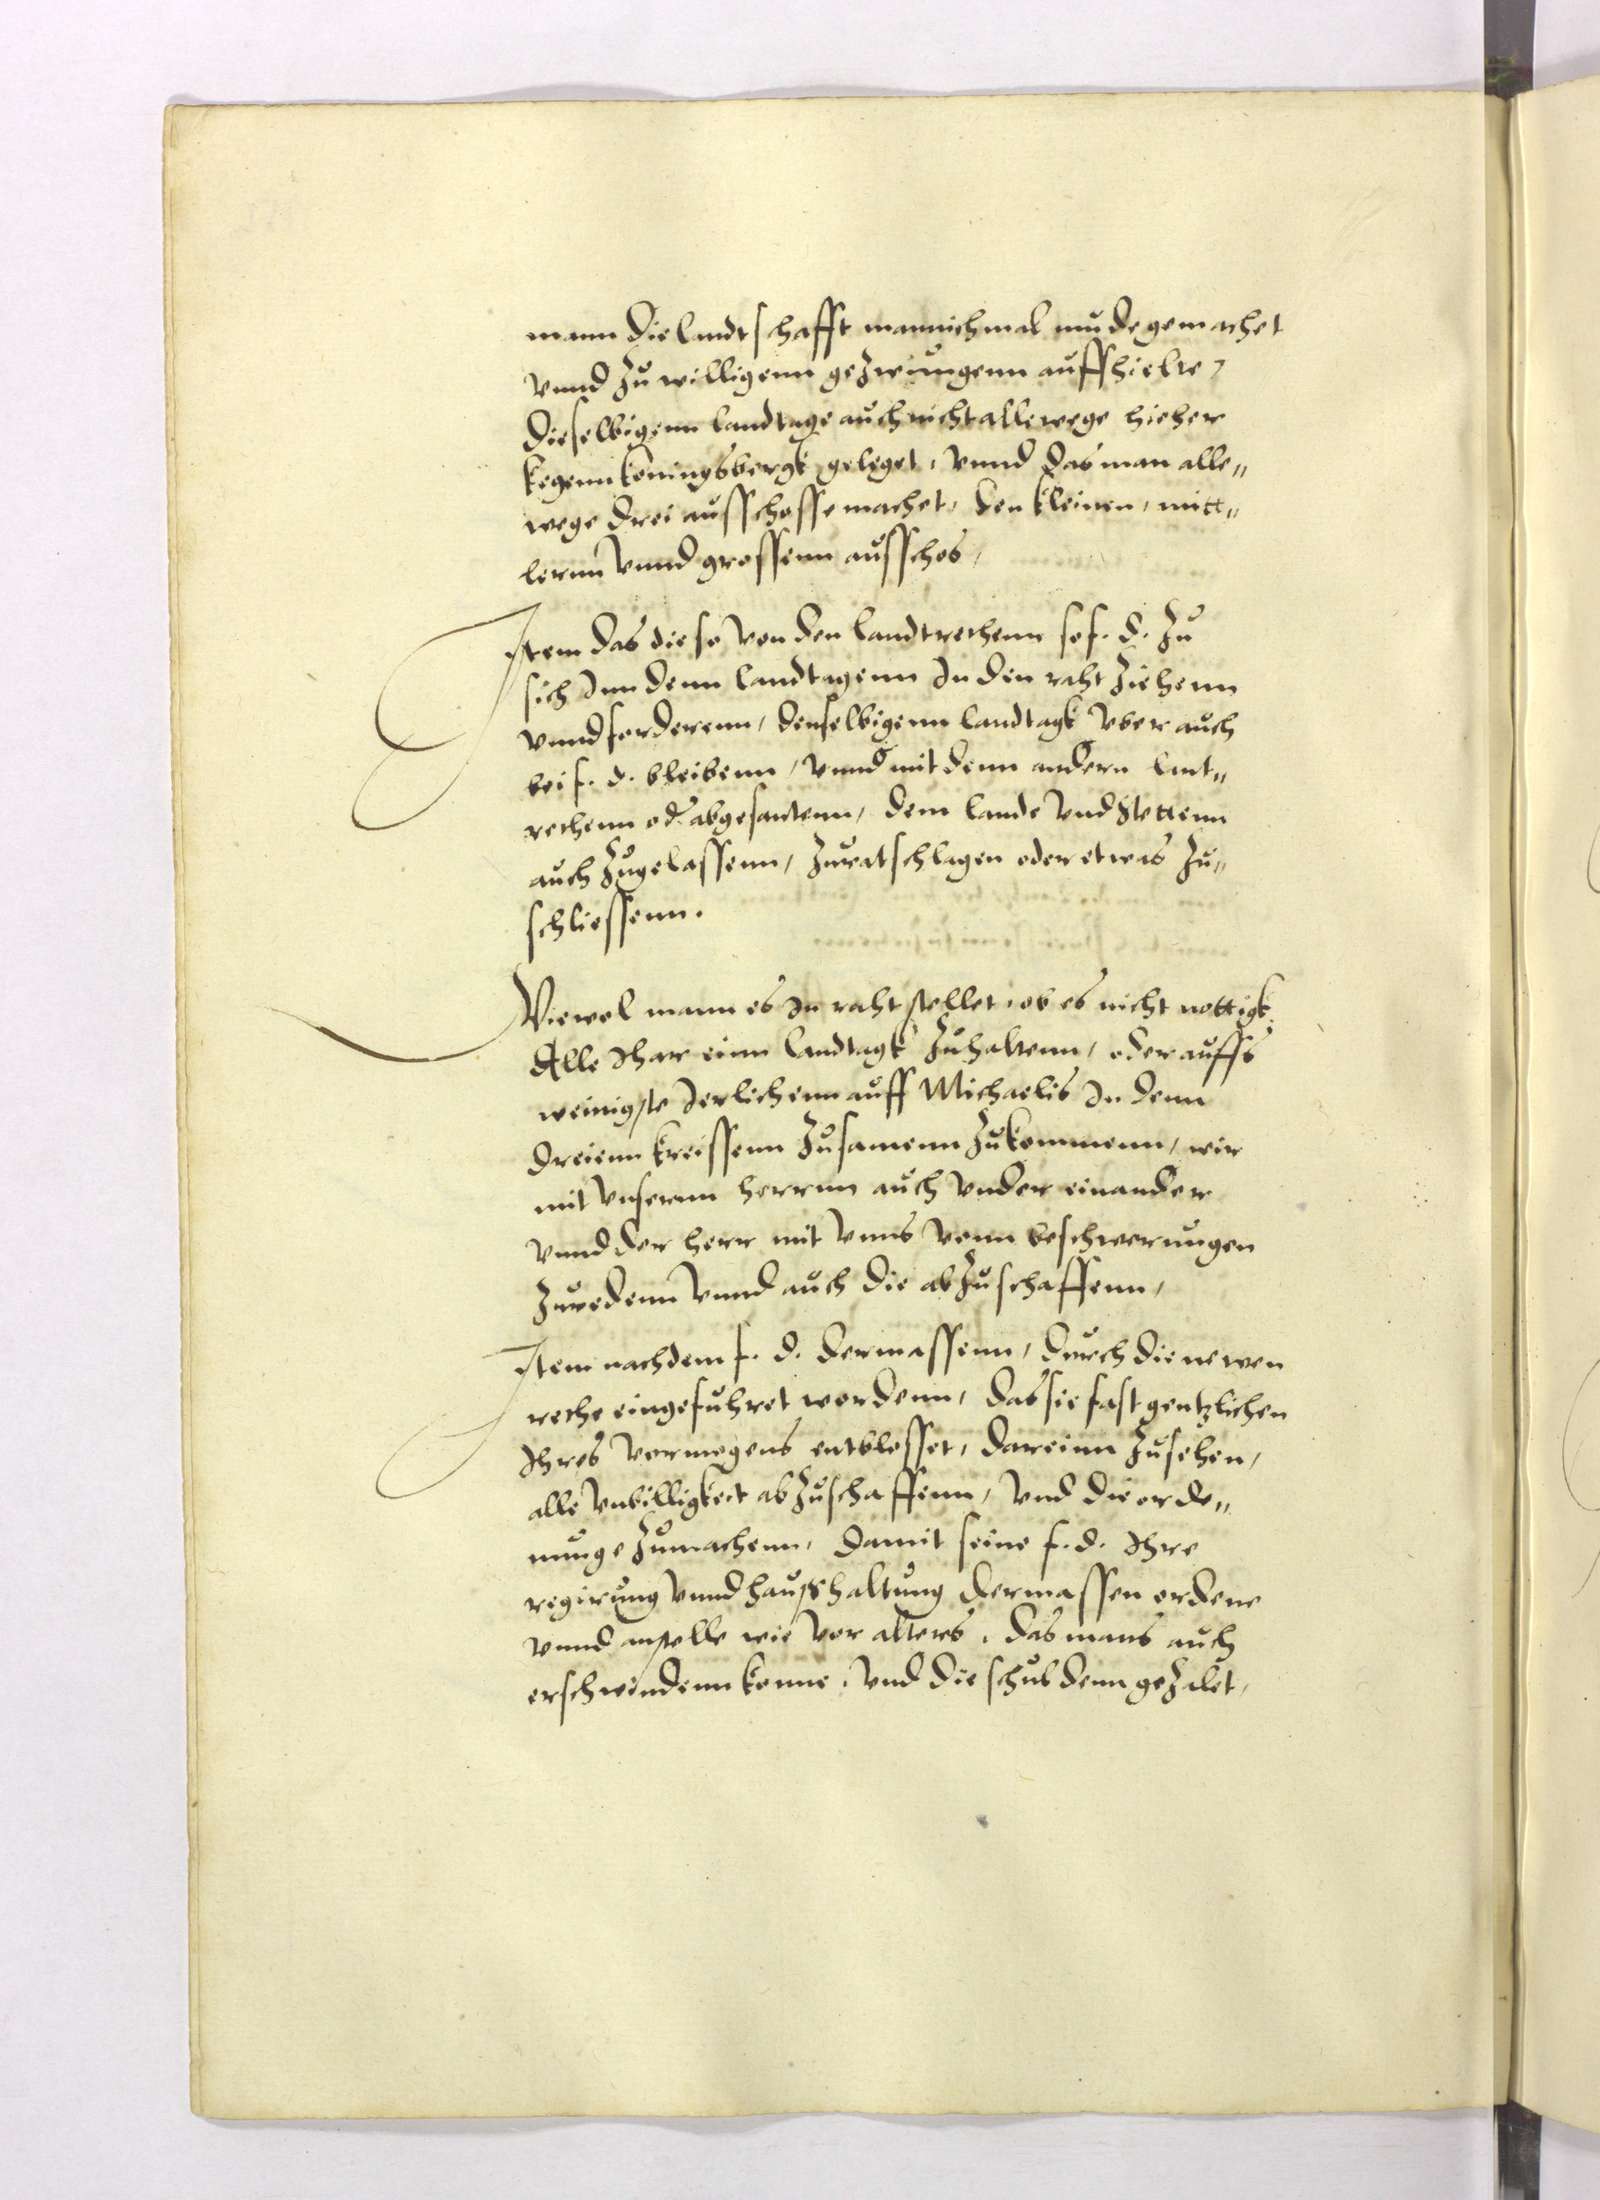 mann die landtschafft mannichmal mude gemachet
vnnd zu willigenn gezwungenn auffhielte,
dieselbigenn landtage auch nicht allewege hieher
kegenn konnigsbergk geleget, vnnd das man alle„
wege drei ausschosse machet, den kleinen, mitt„
lernn vnnd grossenn ausschos,
Item das die so von den landtrethenn so f. d. zu
sich Inn denn landtagenn In den raht ziehenn
vnnd forderenn, denselbigenn landtagk vber auch
bei f. d. bleibenn, vnnd mit denn andern lant„
rethenn od abgesantenn, dem lande vnd Stettenn
auch zugelassenn, zuratschlagen oder etwas zu„
schliessenn.
Wiewol mann es In raht stellet, ob es nicht nottigk,
Alle Ihar einn landtagk zuhaltenn, oder auffs
weinigste Ierlichenn auff Michaelis In denn
dreienn kreissenn zusamenn zukommenn, wir
mit vnsernn herrnn auch vnder einander
vnnd der herr mit vnns vonn beschwerungen
zuredenn vnnd auch die abzuschaffenn,
Item nachdem f. d. dermassenn, durch die newen
rethe eingefuhret wordenn, das sie fast gentzlichen
Ihres vermogens entblosset, dareinn zusehen,
alle vnbilligkeit abzuschaffenn, vnd die orde„
nunge zumachenn, damit seine f. d. Ihre
regirung vnnd haußhaltung dermassen ordene
vnnd anstelle wie vor alters, das mans auch
erschwindenn konne, vnd die schuldenn gezalet,